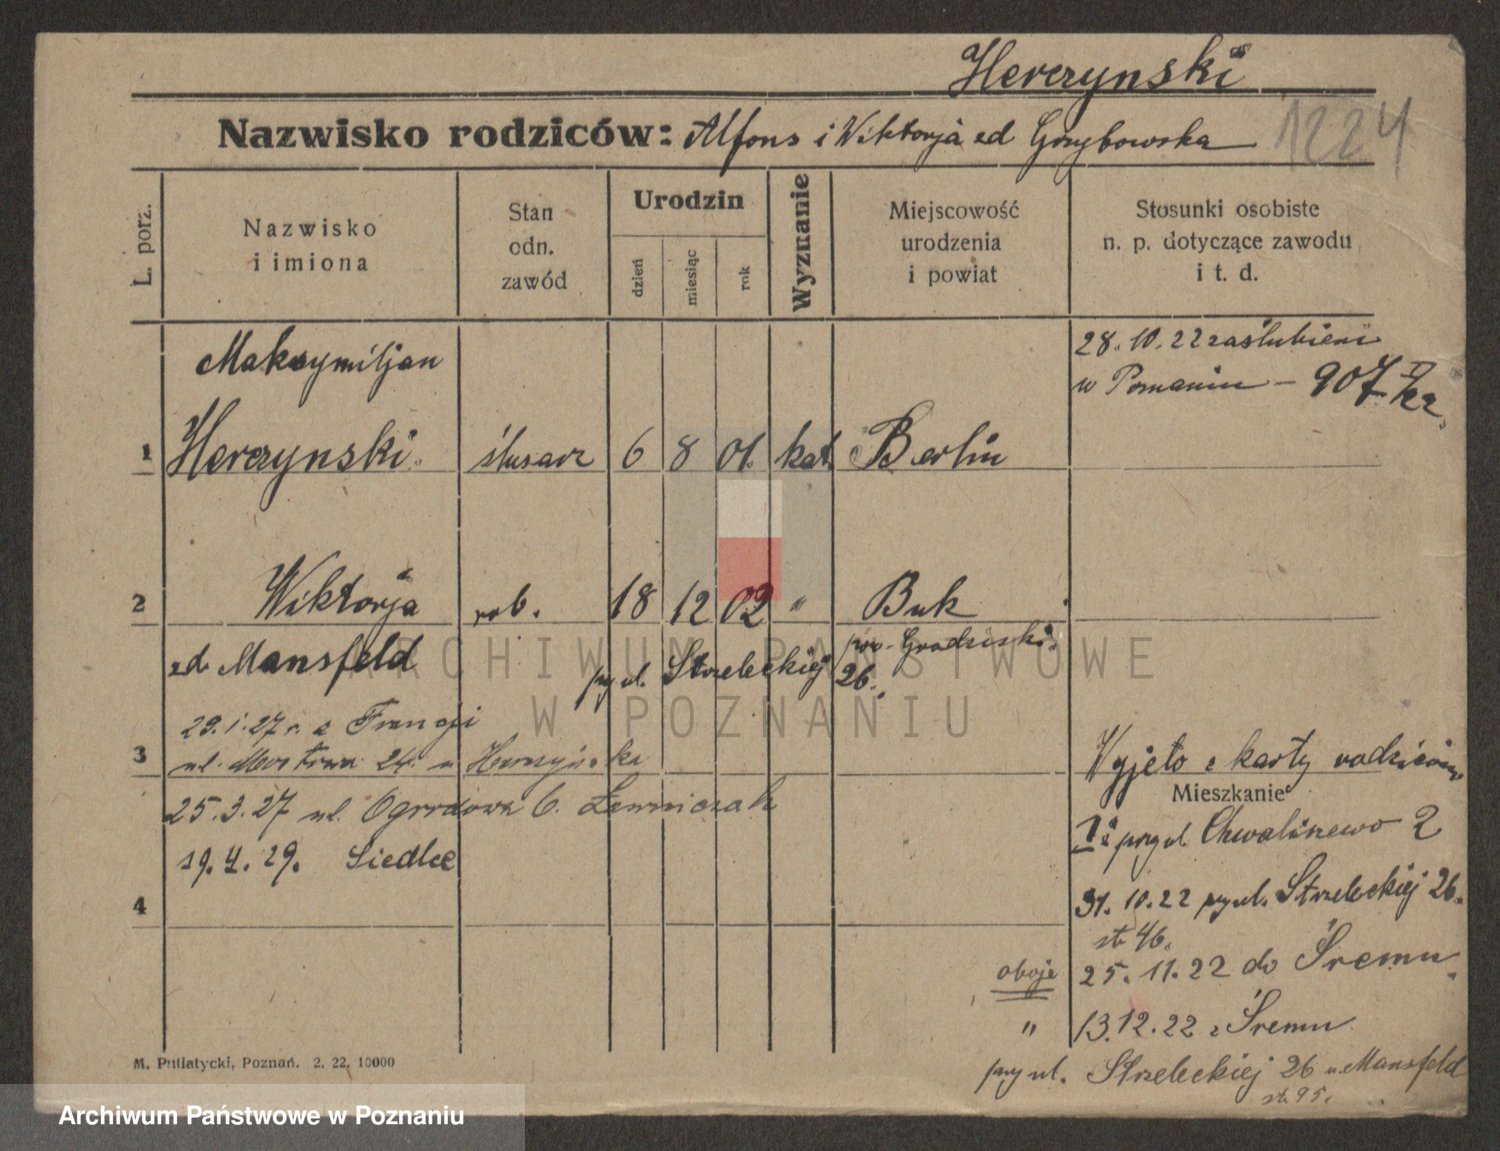 Herczynski
1224
Nazwisko rodziców: Alfons i Wiktorja zd Grzybowska
L. porz.
Nazwisko i imiona
Stan odn. zawód
Urodzin
dzień
miesiąc
rok
Wyznanie
Miejscowość urodzenia i powiat
Stosunki osobiste n. p. dotyczące zawodu i t. d.
28.10.22 zaślubieni
w Poznaniu - 907
Maksymiljan
1 Herczynski. ślusarz 6 8 01. kat. Berlin
2 Wiktorja rob. 18 12 02 " Buk
zd. Mansfeld
pow. Grodziski.
przy ul. Strzeleckiej 26.
29.1.27 r. z Francji
3 ul. Mostowa 24 u Herczyńska
Wyjęto z karty rodziców
Mieszkanie
25.3.27 ul. Ogrodowa 6. Ławniczak
przy ul. Chwaliszewo 2
19.4.29. Siedlce
31.10.22 przy ul. Strzeleckiej 26.
4
st 46.
oboje 25.11.22 do Śremu
" 13.12.22 z Śremu
przy ul. Strzeleckiej 26 u Mansfeld
st. 95.
M. Putiatycki, Poznań. 2. 22. 10000
ARCHIWUM PAŃSTWOWE
W POZNANIU
Archiwum Państwowe w Poznaniu